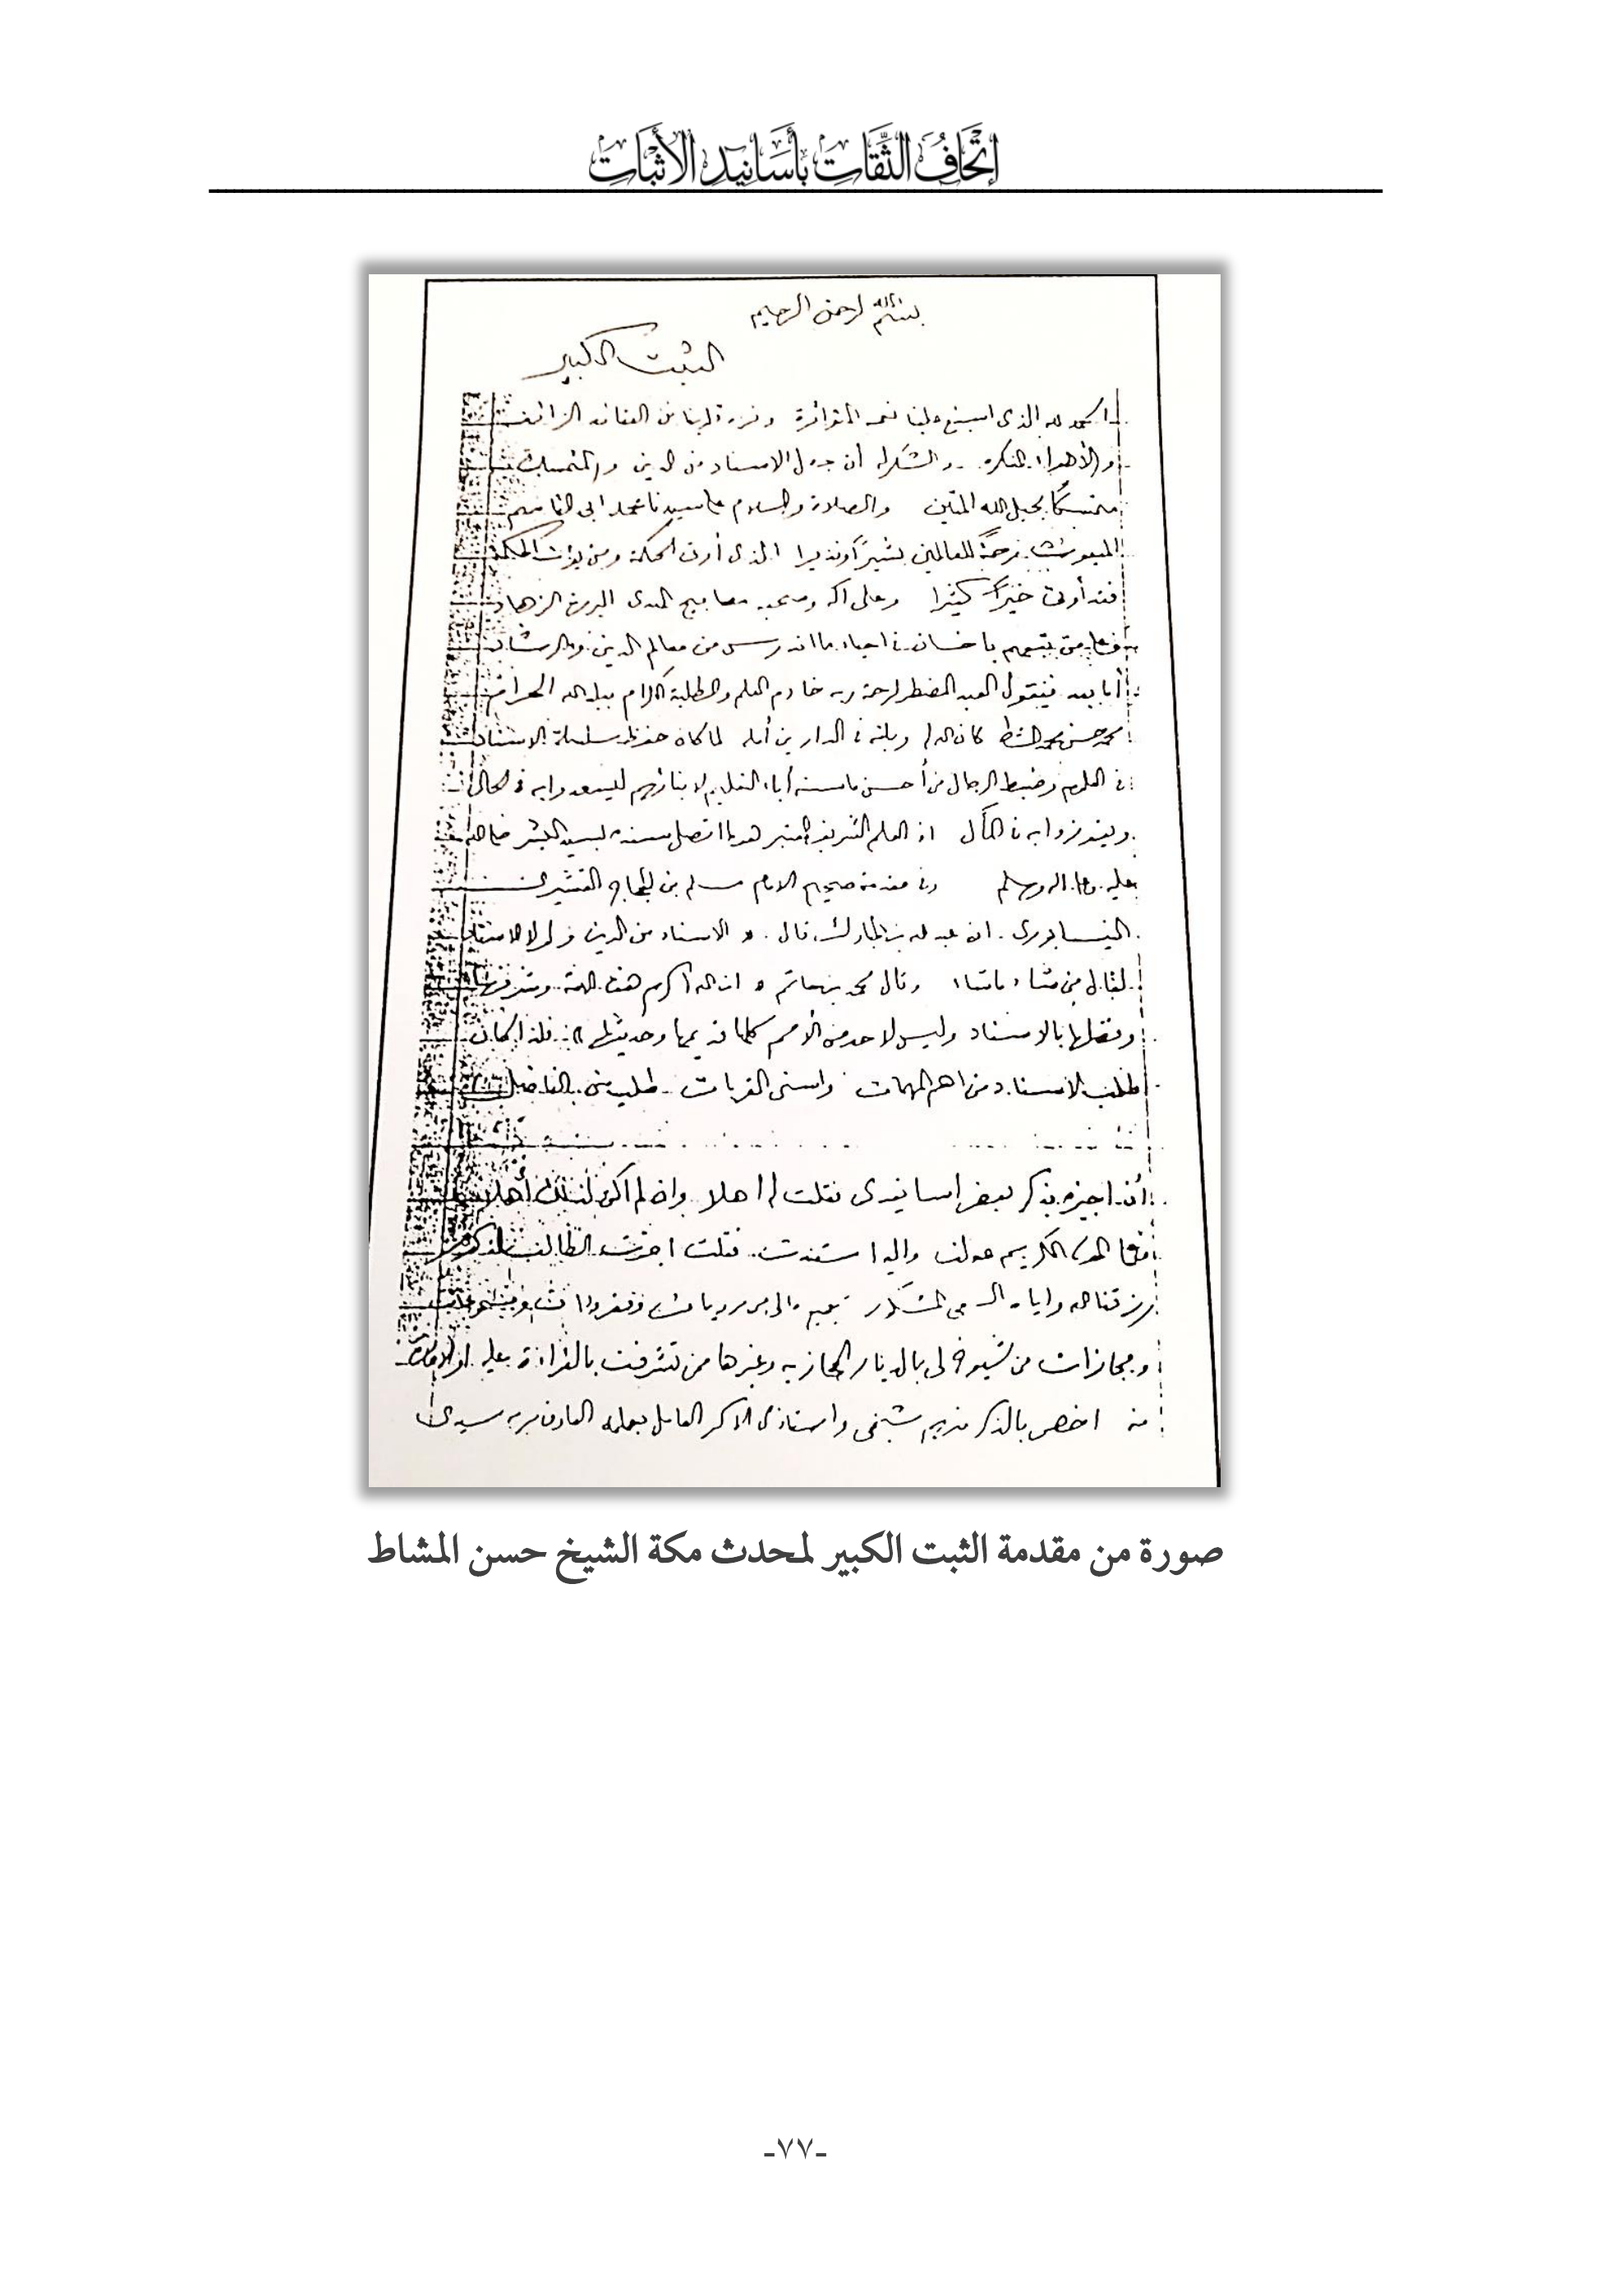 إتحاف الثقات بأسانيد الأثبات
بسم الله الرحمن الرحيم
الثبت الكبير
الحمد لله الذى اسبغ علينا نعمه المتواترة ونزه قلوبنا من العقائد الزائفة
والأهواء المنكرة والشكر له أن جعل الاسناد من الدين والمتمسك
متمسكًا بحبل الله المتين والصلاة والسلام على سيدنا محمد ابى القاسم
المبعوث رحمةً للعالمين بشيرًا ونذيرا الذى أوتى الحكمة ومن يؤت الحكمة
فقد أوتى خيرًا كثيرا وعلى آله وصحبه مصابيح الهدى البررة الزهاد
وعلى من تبعهم باحسان فى احياء ما اندرس من معالم الدين والرشاد
أما بعد فيقول العبد المضطر لرحمة ربه خادم العلم والطلبة الكرام ببلد الله الحرام
محمد حسن محمد المشاط كان الله له وبلغه فى الدارين أمله لما كان حفظ سلسلة الاسناد
فى العلوم وضبط الرجال من أحسن ما سنه أباء التعليم لابنائهم ليسعدوا به فى الحال
ويفوزوا به فى المآل اذ العلم الشريف المعتبر هو ما اتصل سنده بسيد البشر صلى الله
عليه وعلى آله وسلم وفى مقدمة صحيح الامام مسلم بن الحجاج القشيرى
النيسابورى ان عبد الله بن المبارك قال الاسناد من الدين ولولا الاسناد
لقال من شاء ما شاء وقال محمد بن حاتم ان الله أكرم هذه الامة وشرفها
وفضلها بالاسناد وليس لاحد من الأمم كلها قديمها وحديثها فلذا كان
طلب الاسناد من اهم المهمات واسنى القربات طلب منى الفاضل
أن اجيزه بذكر بعض اسانيدى فقلت له اهلا وان لم اكن لذلك أهلا
فعلى الله الكريم عولت واليه استندت فقلت اجزت الطالب المذكور
رزقنا الله واياه السعى المشكور بجميع مالى من مرويات ومقروءات ومسموعات
ومجازات من شيوخى بالديار الحجازية وغيرها ممن تشرفت بالقراءة عليه او الاجازة
منه اخص بالذكر منهم شيخى واستاذى الاكبر العامل بعلمه العارف بربه سيدى
صورة من مقدمة الثبت الكبير لمحدث مكة الشيخ حسن المشاط
-٧٧-